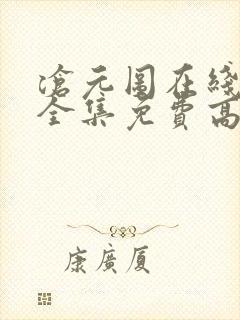 滄元圖在綫
全集免費高
康廣厦